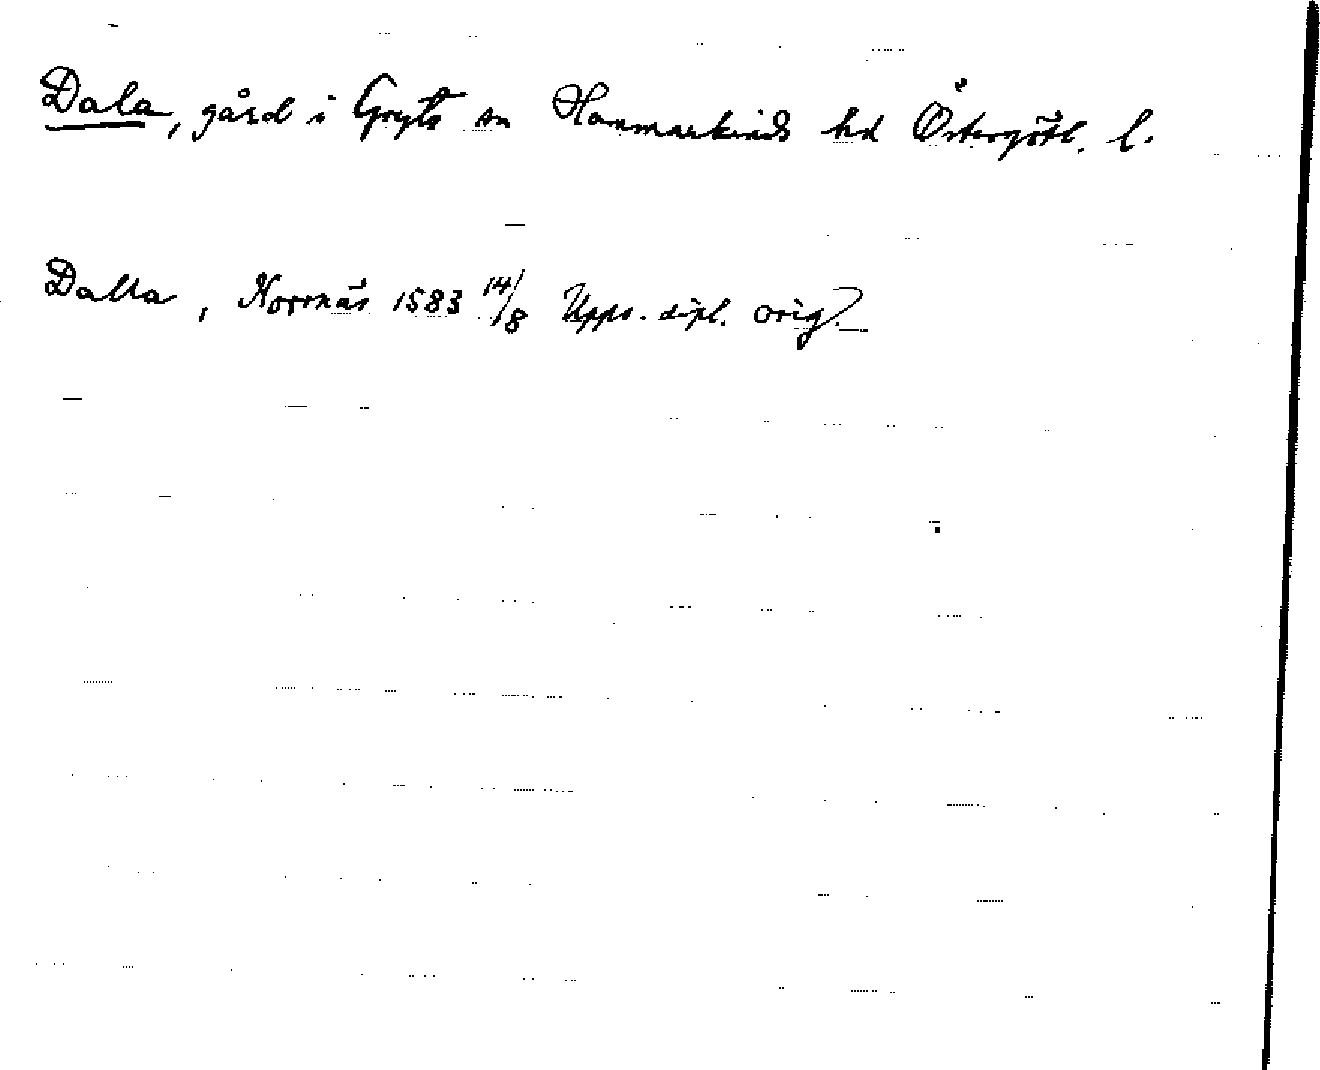 Dala, gård i Gryts sn Hammarkinds hd Östergötl. l.
Dalla, Norrnäs 1583 14/8 Upps. dipl. orig.